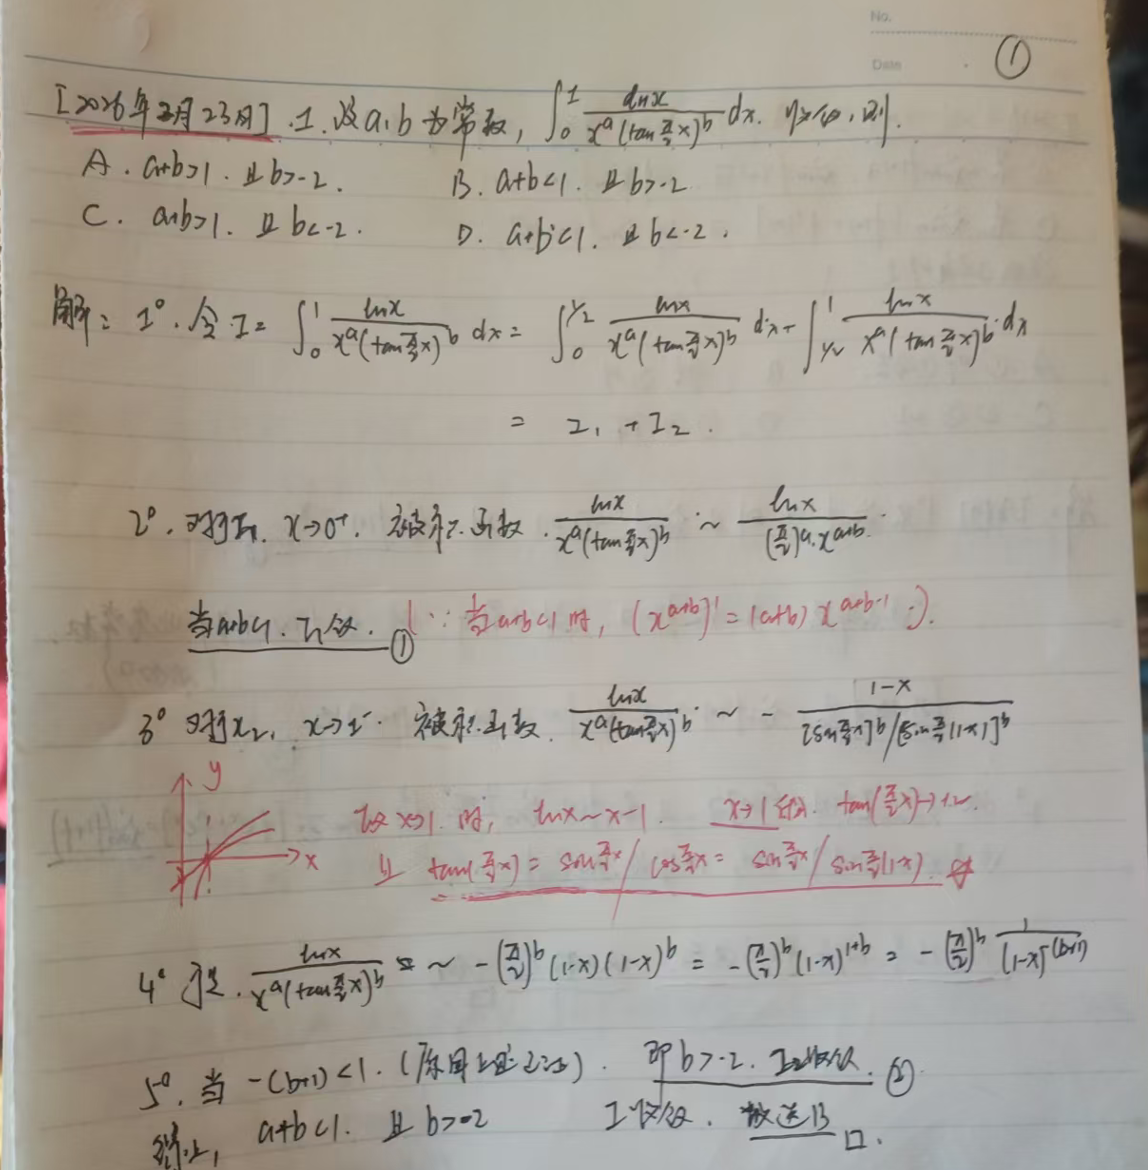 No.
Date
①
[2026年2月23日].1.设a,b为常数, ∫₀¹ lnx/(xᵃ(tan π/2 x)ᵇ) dx. 收敛,则.
A. a+b>1. 且b>-2.  B. a+b<1. 且b>-2
C. a+b>1. 且b<-2.  D. a+b<1. 且b<-2.
解: 1°. 令I= ∫₀¹ lnx/(xᵃ(tan π/2 x)ᵇ) dx = ∫₀^½ lnx/(xᵃ(tan π/2 x)ᵇ) dx + ∫_½¹ lnx/(xᵃ(tan π/2 x)ᵇ) dx
= I₁ + I₂.
2°. 对于I₁, x→0⁺. 被积函数. lnx/(xᵃ(tan π/2 x)ᵇ) ~ lnx/((π/2)ᵃ·xᵃ⁺ᵇ).
当a+b<1. I₁敛. ① (∵当a+b<1时, (xᵃ⁺ᵇ)' = (a+b)xᵃ⁺ᵇ⁻¹ ∴).
3° 对于x₂, x→1⁻. 被积函数. lnx/(xᵃ(tan π/2 x)ᵇ) ~ - (1-x)/([sin π/2 x]ᵇ/[sin π/2 (1-x)]ᵇ)
y
x
x→1. 时, lnx~x-1. x→1 tan(π/2 x)→+∞.
且 tan(π/2 x) = sin π/2 x / cos π/2 x = sin π/2 x / sin π/2 (1-x).
4° 于是. lnx/(xᵃ(tan π/2 x)ᵇ) ~ -(π/2)ᵇ(1-x)(1-x)ᵇ = -(π/2)ᵇ(1-x)¹⁺ᵇ = -(π/2)ᵇ 1/(1-x)⁻⁽ᵇ⁺¹⁾
5°. 当 -(b+1)<1. (原因). 即b>-2. I₂收敛. ②
综上, a+b<1. 且 b>-2 I收敛. 故选B □.